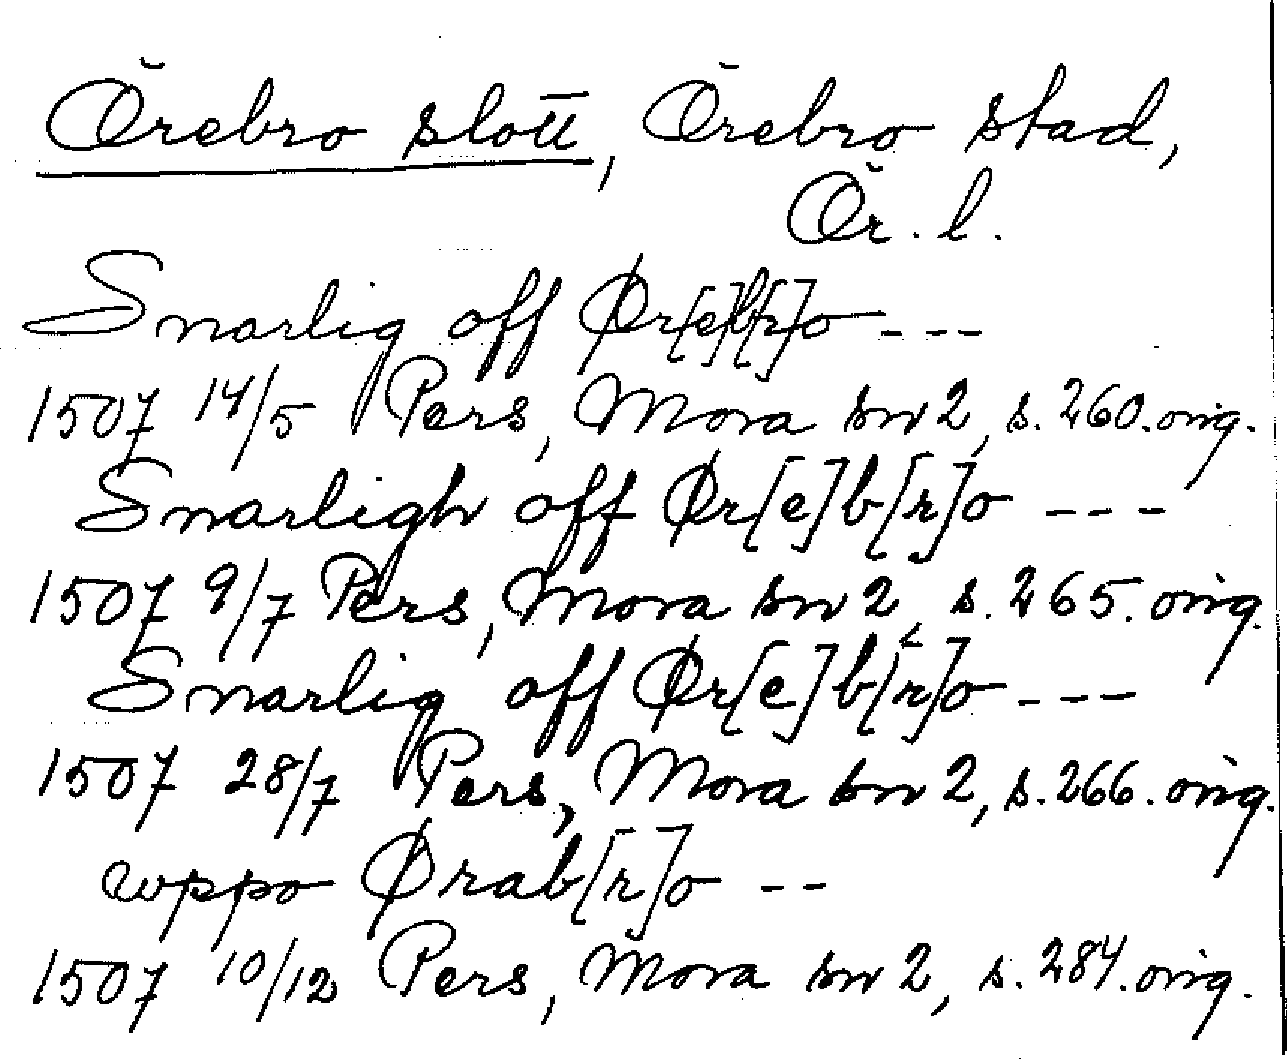 Örebro slott, Örebro stad,
Ör. l.
Snarlig off Ør[e]b[r]o ---
1507 14/5 Pers, Mora sn 2, s. 260. orig.
Snarligh off Ør[e]b[r]o ---
1507 9/7 Pers, Mora sn 2, s. 265. orig.
Snarlig off Ør[e]b[r]o ---
1507 28/7 Pers, Mora sn 2, s. 266. orig.
wppo Ørab[r]o --
1507 10/12 Pers, Mora sn 2, s. 284. orig.